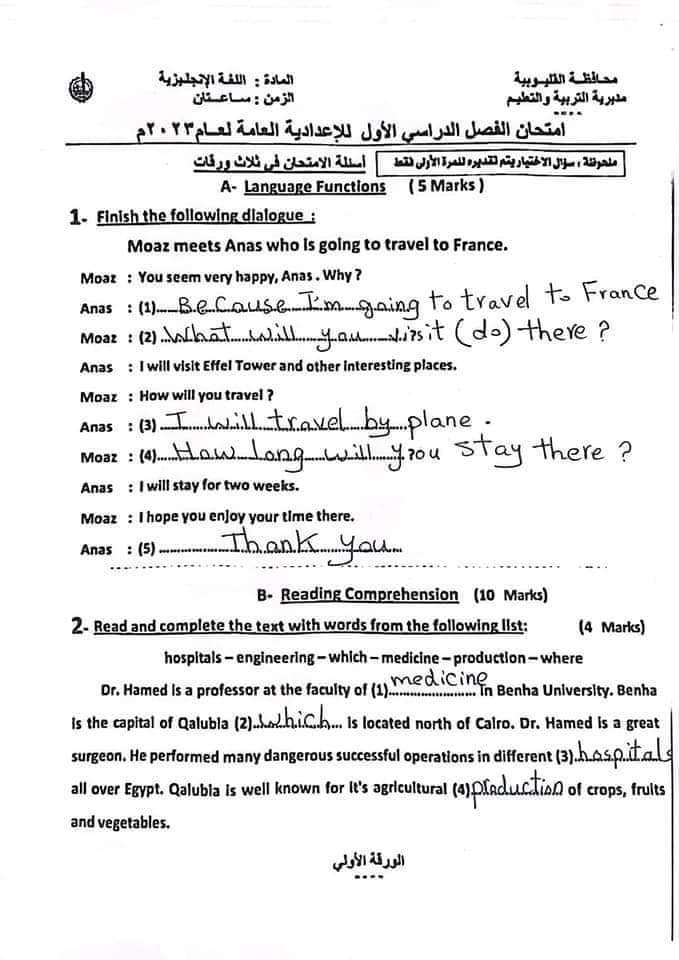 محافظة القليوبية
مديرية التربية والتعليم
المادة : اللغة الإنجليزية
الزمن : ساعتان
امتحان الفصل الدراسي الأول للإعدادية العامة لعام ٢٠٢٣م
ملحوظة : سؤال الاختيار يتم تقديره للمرة الأولى فقط
أسئلة الامتحان في ثلاث ورقات
A- Language Functions ( 5 Marks )
1- Finish the following dialogue :
Moaz meets Anas who is going to travel to France.
Moaz : You seem very happy, Anas . Why ?
Anas : (1) Because I'm going to travel to France
Moaz : (2) What will you visit (do) there ?
Anas : I will visit Effel Tower and other interesting places.
Moaz : How will you travel ?
Anas : (3) I will travel by plane .
Moaz : (4) How long will you stay there ?
Anas : I will stay for two weeks.
Moaz : I hope you enjoy your time there.
Anas : (5) Thank you
B- Reading Comprehension (10 Marks)
2- Read and complete the text with words from the following list: (4 Marks)
hospitals – engineering – which – medicine – production – where
Dr. Hamed is a professor at the faculty of (1) medicine in Benha University. Benha
is the capital of Qalubia (2) which is located north of Cairo. Dr. Hamed is a great
surgeon. He performed many dangerous successful operations in different (3) hospitals
all over Egypt. Qalubia is well known for it's agricultural (4) production of crops, fruits
and vegetables.
الورقة الأولي